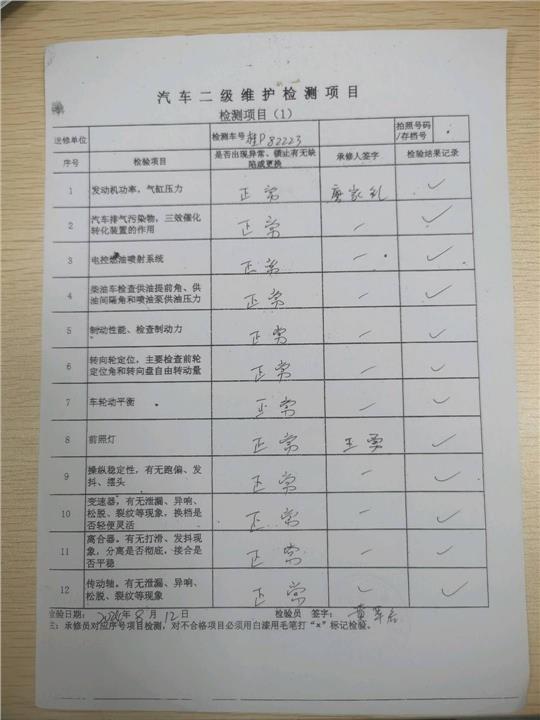 汽车二级维护检测项目
检测项目（1）
送修单位 检测车号 桂P82223 拍照号码/存档号
序号 检验项目 是否出现异常、锁止有无缺陷或更换 承修人签字 检验结果记录
1 发动机功率，气缸压力 正常 ✓
2 汽车排气污染物，三效催化转化装置的作用 正常 — ✓
3 电控燃油喷射系统 正常 — ✓
4 柴油车检查供油提前角、供油间隔角和喷油泵供油压力 正常 — ✓
5 制动性能、检查制动力 正常 — ✓
6 转向轮定位，主要检查前轮定位角和转向盘自由转动量 正常 — ✓
7 车轮动平衡 正常 — ✓
8 前照灯 正常 王勇 ✓
9 操纵稳定性，有无跑偏、发抖、摆头 正常 — ✓
10 变速器，有无泄漏、异响、松脱、裂纹等现象，换档是否轻便灵活 正常 — ✓
11 离合器，有无打滑、发抖现象，分离是否彻底，接合是否平稳 正常 — ✓
12 传动轴，有无泄漏、异响、松脱、裂纹等现象 正常 — ✓
检验日期： 年8月12日 检验员 签字：
注：承修员对应序号项目检测，对不合格项目必须用白漆用毛笔打“×”标记检验。